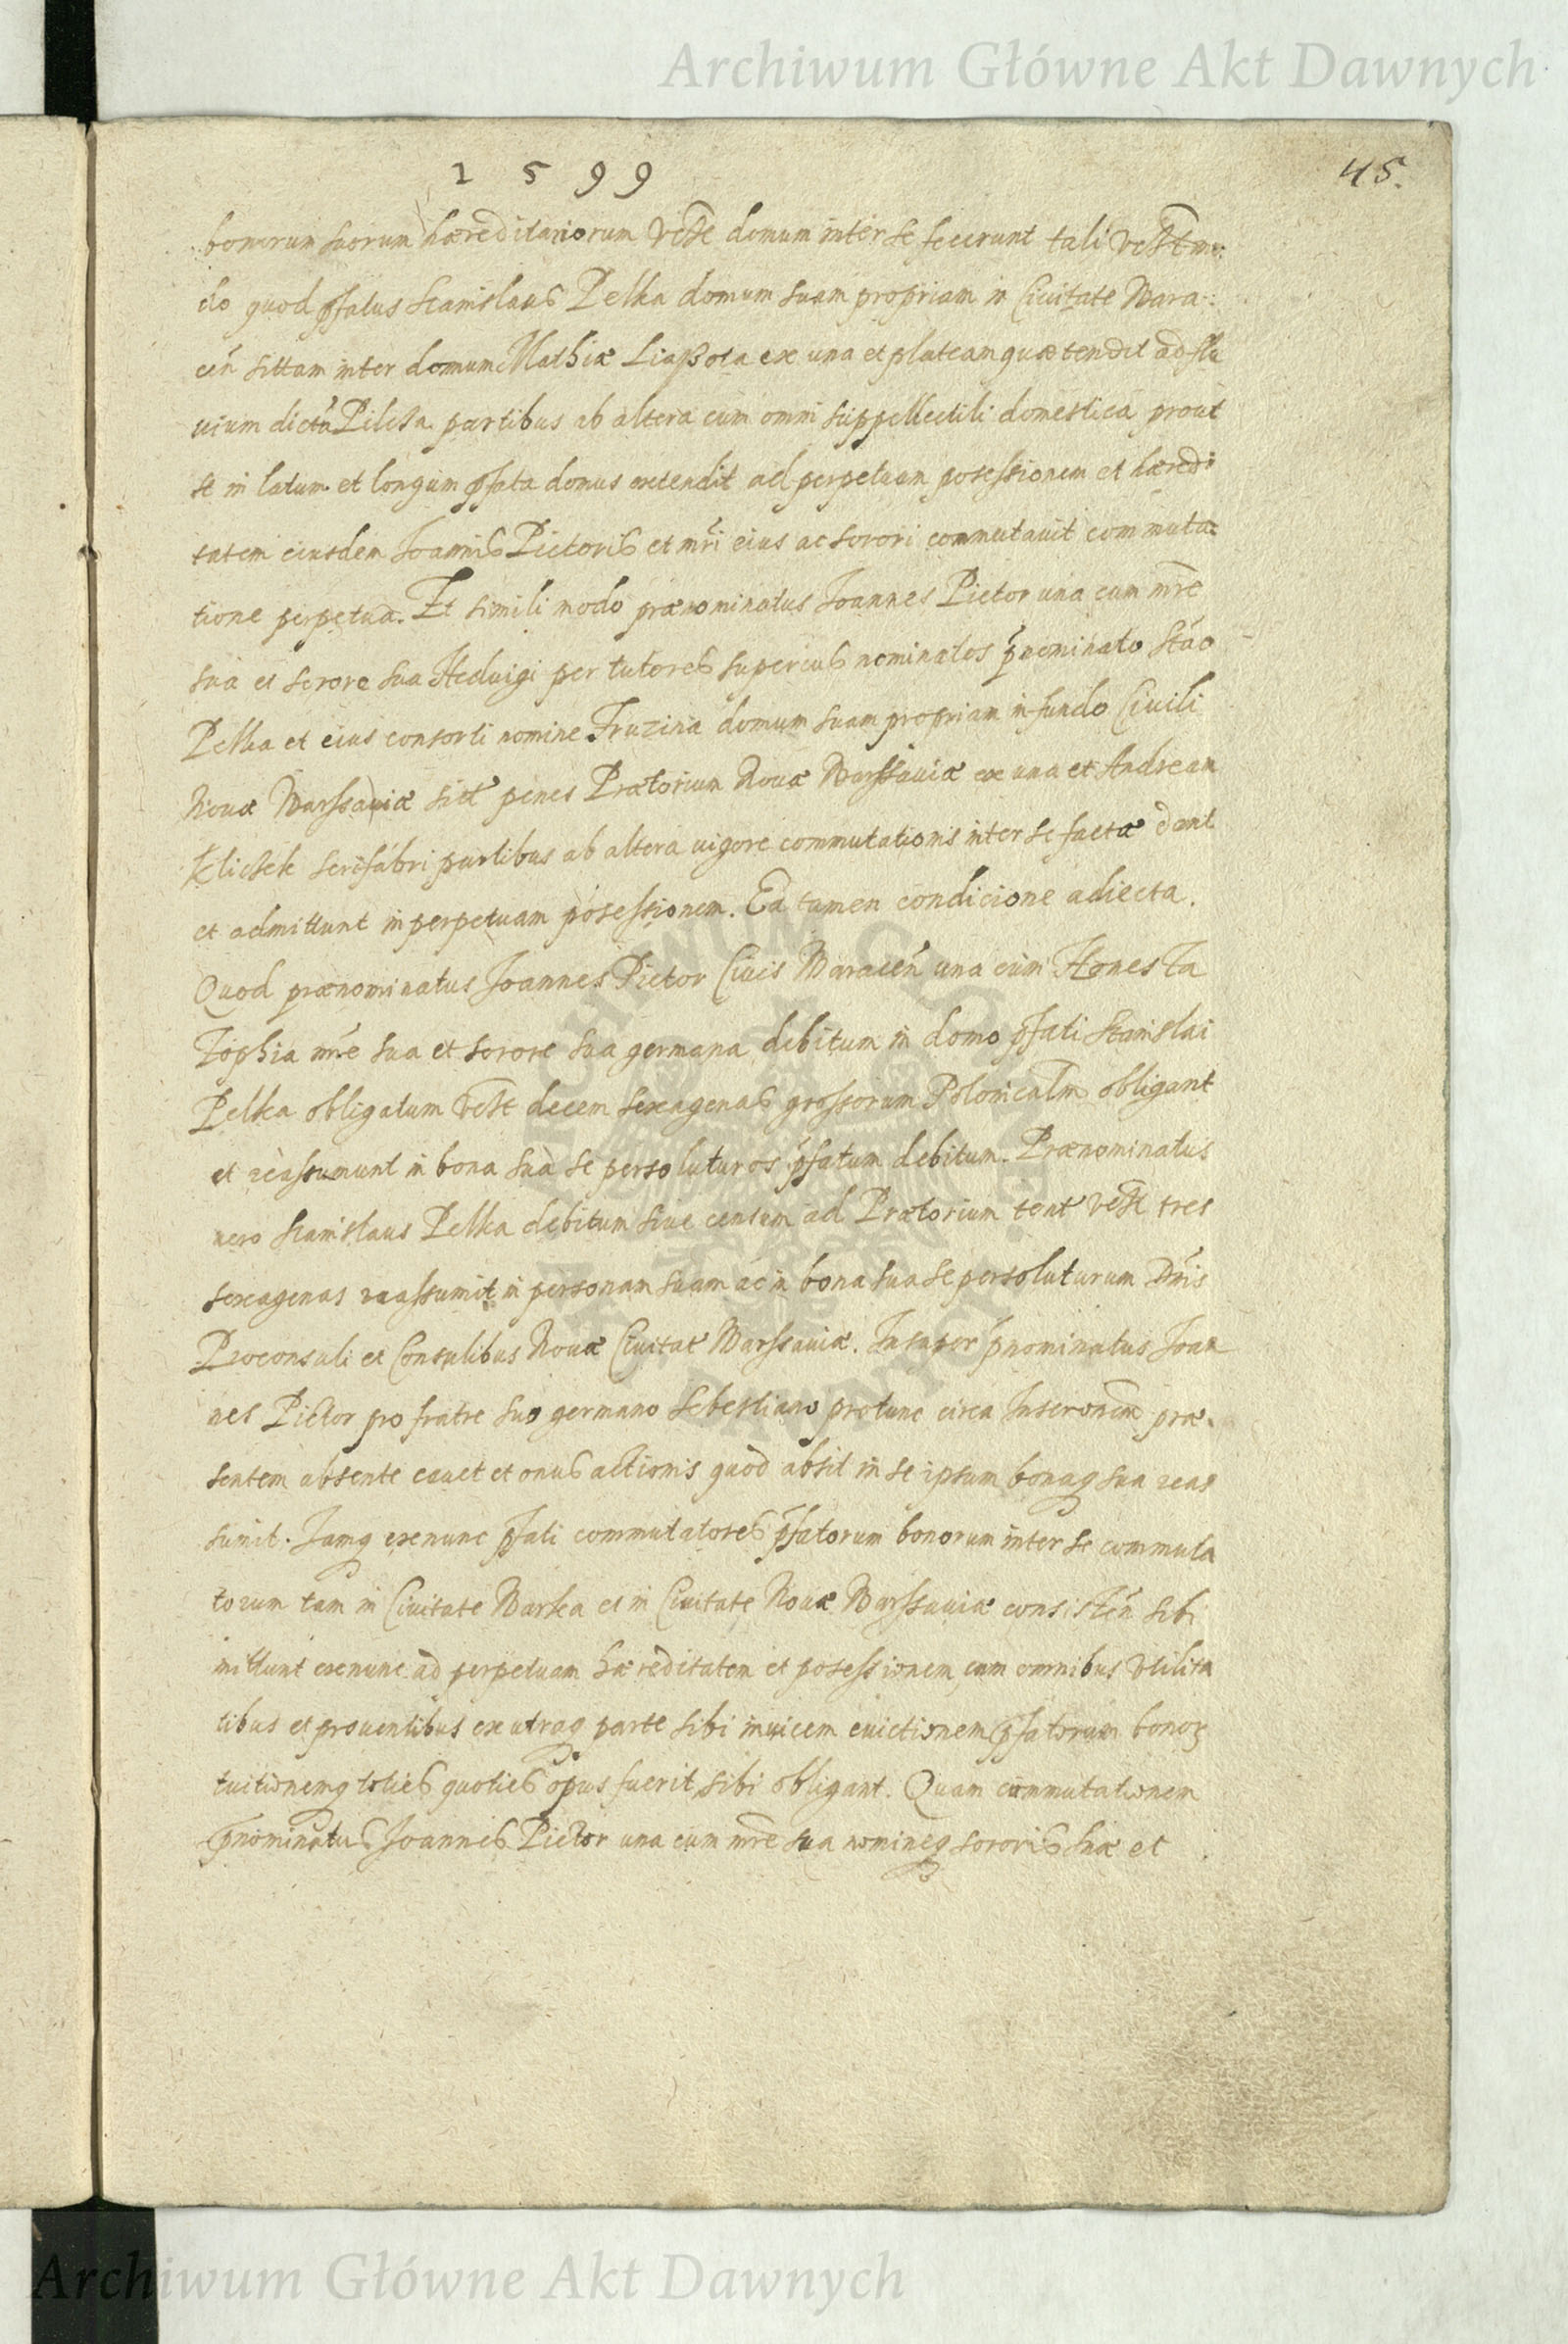 Archiwum Główne Akt Dawnych
1 5 9 9
45.
bonorum suorum hæreditariorum vdzt domum inter se fecerunt tali vdzt mo:
do quod pfatus Stanislaus Pelka domum suam propriam in Ciuitate Wara:
cen sittam inter domum Mathiæ Liaßota ex una et plateam quæ tendit ad flu
uium dictu Pilcza partibus ab altera cum omni suppellectili domestica prout
se in latum et longum pfata domus extendit ad perpetuam posessionem et hæredi
tatem eiusdem Joannis Pictoris et mri eius ac sorori commutauit commuta:
tione perpetua. Et simili modo prænominatus Joannes Pictor una cum mre
sua et sorore sua Heduigi per tutores superius nominatos pnominato Stao
Pelka et eius consorti nomine Fruzina domum suam propriam in fundo Ciuili
Nouæ Warssauiæ sit penes Prætorium Nouæ Warssauiæ ex una et Andream
Kliczek serifabri partibus ab altera uigore commutationis inter se factæ dant
et admittunt in perpetuam posessionem. Ea tamen condicione adiecta.
Quod prænominatus Joannes Pictor Ciuis Waracen una cum Honesta
Zophia mre sua et sorore sua germana debitum in domo pfati Stanislai
Pelka obligatum vdzt decem sexagenas grossorum Polonicalm obligant
et reassumunt in bona sua se persoluturos pfatum debitum. Prænominatus
uero Stanislaus Pelka debitum siue censum ad Prætorium tent vdzt tres
sexagenas reassumit in personam suam ac in bona sua se persoluturum Dnis
Proconsuli et Consulibus Nouæ Ciuitat Warssauiæ. Insuper pnominatus Joan
nes Pictor pro fratre suo germano Sebestiano protunc circa Inscronem præ.
sentem absente cauet et onus actionis quod absit in se ipsum bonaq sua reas
sumit. Jamq exnunc pfati commutatores pfatorum bonorum inter se commuta
torum tam in Ciuitate Warka et in Ciuitate Nouæ Warssauiæ consisten sibi
mittunt exnunc ad perpetuam hæreditatem et posessionem cum omnibus vtilita
tibus et prouentibus ex utraq parte sibi inuicem euictionem pfatorum bonoꝝ
tuitionemq toties quoties opus fuerit sibi obligant. Quam commutationem
pnominatus Joannes Pictor una cum mre sua nomineq sororis suæ et
Archiwum Główne Akt Dawnych